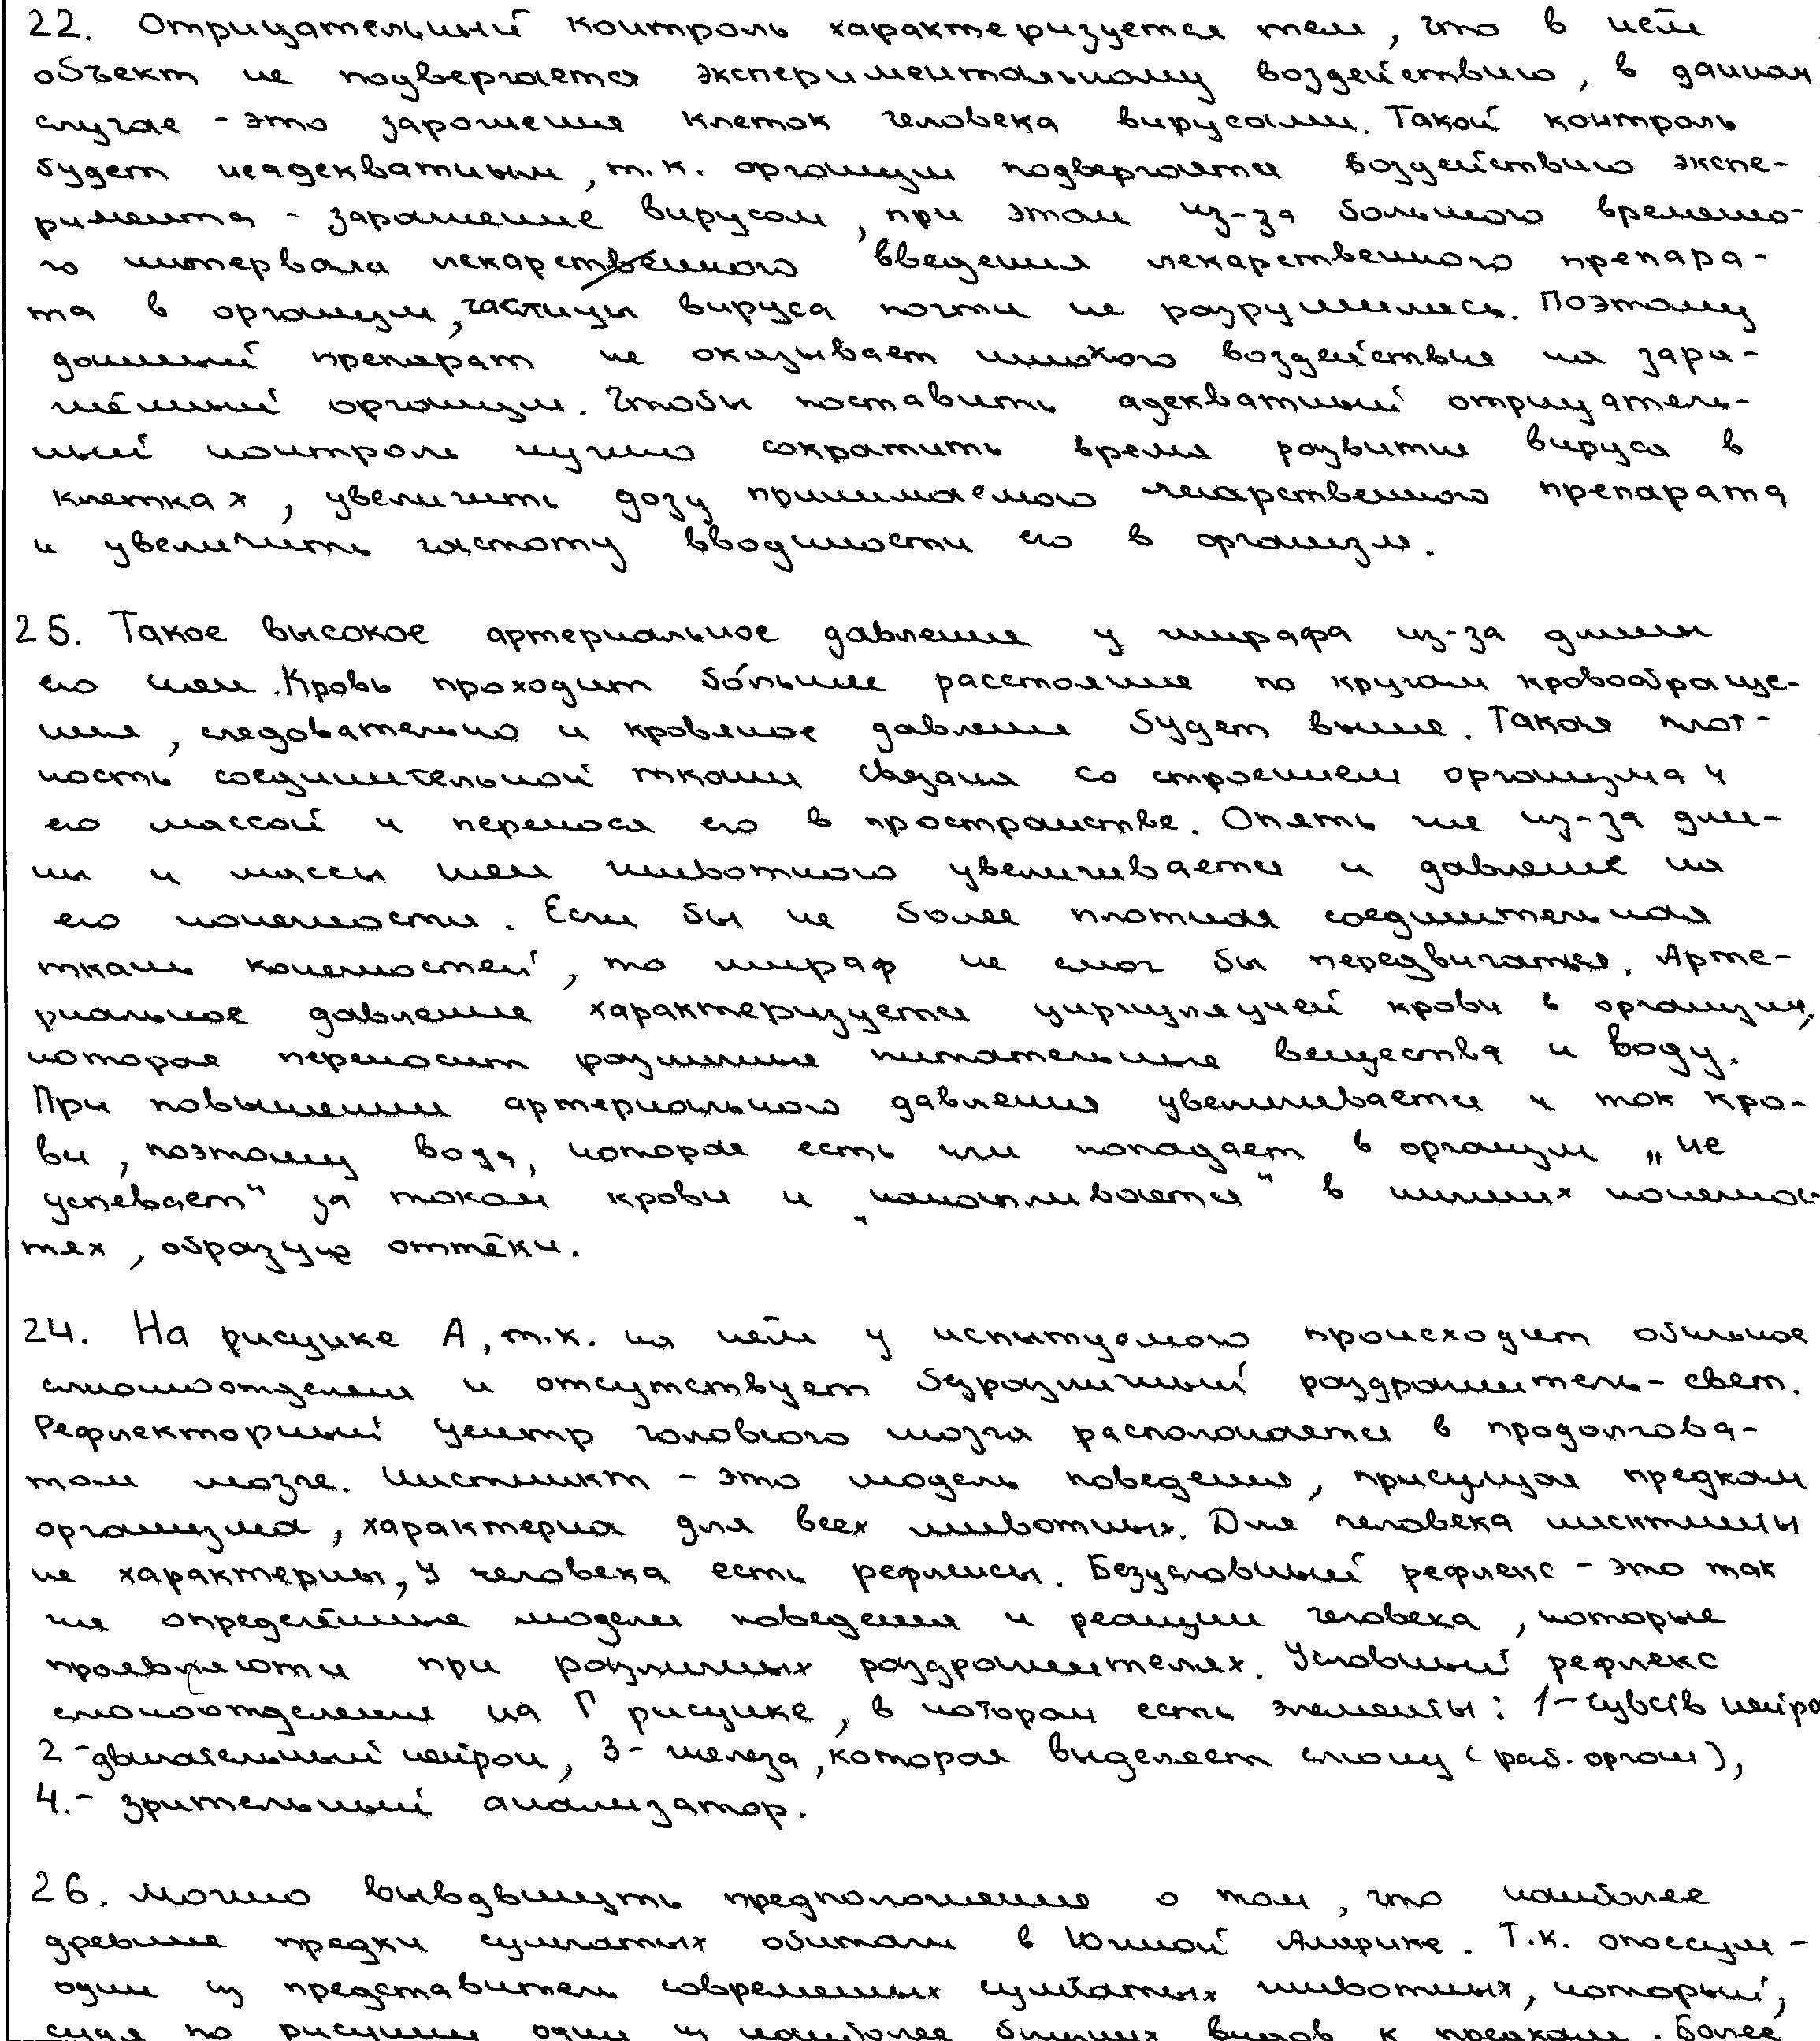 22. Отрицательный контроль характеризуется тем, что в нём
объект не подвергается экспериментальному воздействию, в данном
случае - это заражение клеток человека вирусами. Такой контроль
будет неадекватным, т.к. организм подвергается воздействию экспе-
римента - заражение вирусом, при этом из-за большого временно-
го интервала лекарственного введения лекарственного препара-
та в организм, частицы вируса почти не разрушились. Поэтому
данный препарат не оказывает никакого воздействия на зара-
жённый организм. Чтобы поставить адекватный отрицатель-
ный контроль нужно сократить время развития вируса в
клетках, увеличить дозу принимаемого лекарственного препарата
и увеличить частоту вводимости его в организм.
25. Такое высокое артериальное давление у жирафа из-за длины
его шеи. Кровь проходит бо́льшее расстояние по кругам кровообраще-
ния, следовательно и кровяное давление будет выше. Такая плот-
ность соединительной ткани связана со строением организма и
его массой и переноса его в пространстве. Опять же из-за дли-
ны и массы шеи животного увеличивается и давление на
его конечности. Если бы не более плотная соединительная
ткань конечностей, то жираф не смог бы передвигаться. Арте-
риальное давление характеризуется циркуляцией крови в организме,
которая переносит различные питательные вещества и воду.
При повышении артериального давления увеличивается и ток кро-
ви, поэтому вода, которая есть или попадает в организм „не
успевает" за током крови и „накапливается" в нижних конечнос-
тях, образуя оттёки.
24. На рисунке А, т.к. на нём у испытуемого происходит обильное
слюноотделение и отсутствует безразличный раздражитель - свет.
Рефлекторный центр головного мозга располагается в продолгова-
том мозге. Инстинкт - это модель поведения, присущая предкам
организма, характерна для всех животных. Для человека инсктинты
не характерны, у человека есть рефлексы. Безусловный рефлекс - это так
же определённые модели поведения и реакции человека, которые
проявляются при различных раздражителях. Условный рефлекс
слюноотделения на Г рисунке, в котором есть элементы: 1 - чувств нейро
2 - двигательный нейрон, 3 - железа, которая выделяет слюну (раб. орган),
4. - зрительный анализатор.
26. Можно выдвинуть предположение о том, что наиболее
древние предки сумчатых обитали в Южной Америке. Т.к. опоссум -
один из представитель современных сумчатых животных, который,
судя по рисунку один из наиболее близких видов к предкам. Более